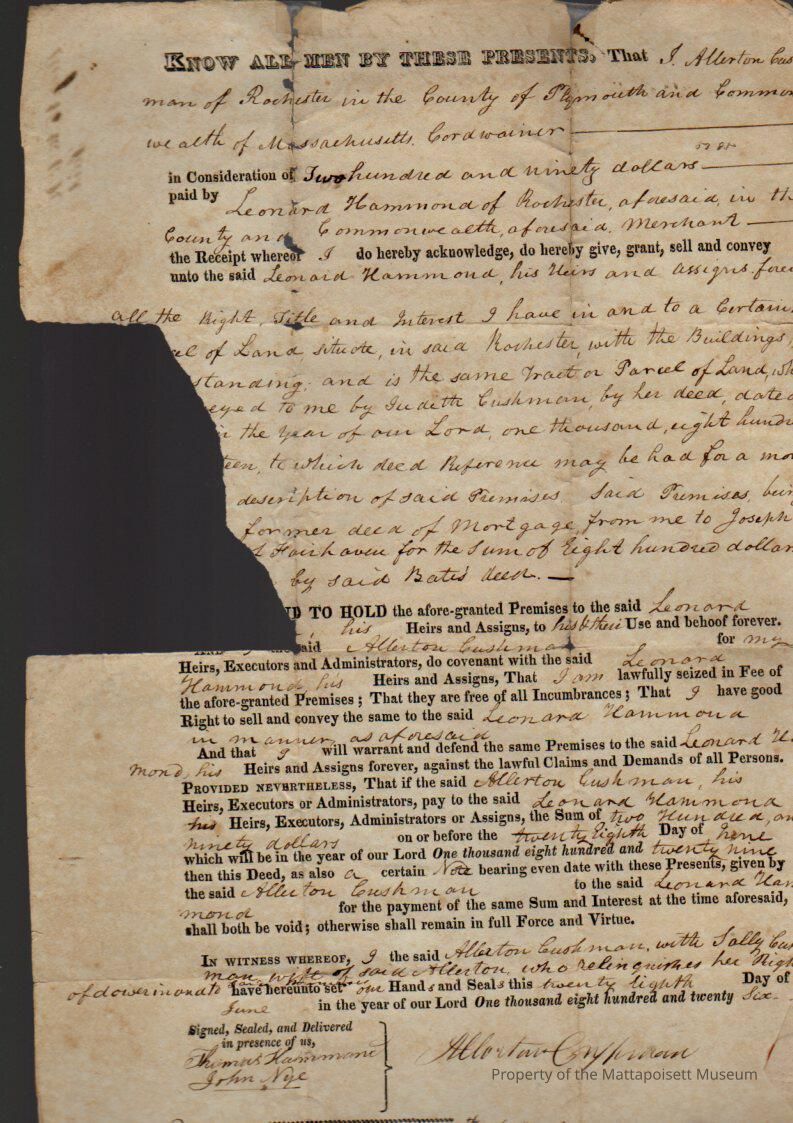 KNOW ALL MEN BY THESE PRESENTS, That I. Allerton Cus
man of Rochester in the County of Plymouth and Common
wealth of Massachusetts. Cordwainer
in Consideration of Two hundred and ninety dollars
paid by Leonard Hammond of Rochester, aforesaid, in th
County and Commonwealth, aforesaid. Merchant
the Receipt whereof I do hereby acknowledge, do hereby give, grant, sell and convey
unto the said Leonard Hammond, his Heirs and assigns forev
all the Right, Title and Interest I have in and to a Certain
cel of Land, situate, in said Rochester, with the Buildings,
standing; and is the same Tract or Parcel of Land, wh
eyed to me by Judith Cushman, by her deed, dated
in the year of our Lord, one thousand, eight hundr
teen, to which deed Reference may be had for a mor
description of said Premises. Said Premises, bein
former deed of Mortgage, from me to Joseph
of Fairhaven for the Sum of Eight hundred dollar
by said Bates deed.
ND TO HOLD the afore-granted Premises to the said Leonard
his Heirs and Assigns, to his & their Use and behoof forever.
AND I the said Allerton Cushman for my
Heirs, Executors and Administrators, do covenant with the said Leonard
Hammond, his Heirs and Assigns, That I am lawfully seized in Fee of
the afore-granted Premises; That they are free of all Incumbrances; That I have good
Right to sell and convey the same to the said Leonard Hammond
in manner as aforesaid
And that I will warrant and defend the same Premises to the said Leonard H
mond, his Heirs and Assigns forever, against the lawful Claims and Demands of all Persons.
PROVIDED NEVERTHELESS, That if the said Allerton Cushman, his
Heirs, Executors or Administrators, pay to the said Leonard Hammond
his Heirs, Executors, Administrators or Assigns, the Sum of two Hundred, an
ninety dollars on or before the twenty Eighth Day of
which will be in the year of our Lord One thousand eight hundred and twenty nine
then this Deed, as also a certain Note bearing even date with these Presents, given by
the said Allerton Cushman to the said Leonard Ham
mond for the payment of the same Sum and Interest at the time aforesaid,
shall both be void; otherwise shall remain in full Force and Virtue.
IN WITNESS WHEREOF, I the said Allerton Cushman, with Sally Cus
man, wife of said Allerton, who relinquishes her Righ
of dower in and to have hereunto set our Hands and Seals this twenty eighth Day of
June in the year of our Lord One thousand eight hundred and twenty Six
Signed, Sealed, and Delivered
in presence of us,
Thomas Hammond
John Nye
Allerton Cushman
Property of the Mattapoisett Museum